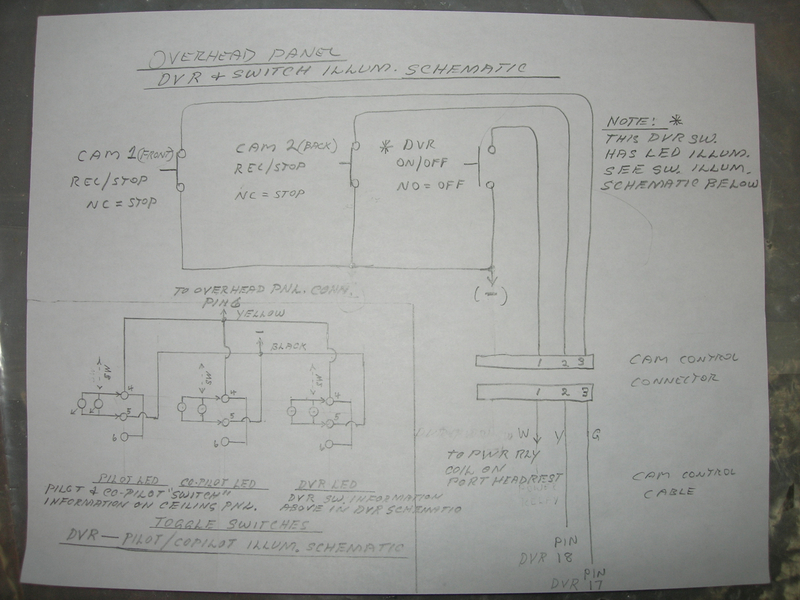 OVERHEAD PANEL
DVR & SWITCH ILLUM. SCHEMATIC
CAM 1 (FRONT)
REC/STOP
NC = STOP
CAM 2 (BACK)
REC/STOP
NC = STOP
* DVR
ON/OFF
NO = OFF
NOTE: *
THIS DVR SW.
HAS LED ILLUM.
SEE SW. ILLUM.
SCHEMATIC BELOW
(-)
1 2 3
CAM CONTROL
CONNECTOR
1 2 3
W Y G
TO PWR RLY
COIL ON
PORT HEADREST
CAM CONTROL
CABLE
PIN
DVR 18
PIN
DVR 17
TO OVERHEAD PNL. CONN.
PIN 6
YELLOW
-
BLACK
SW
4
5
6
SW
4
5
6
SW
4
5
6
PILOT LED
CO-PILOT LED
DVR LED
PILOT & CO-PILOT "SWITCH"
INFORMATION ON CEILING PNL.
DVR SW. INFORMATION
ABOVE IN DVR SCHEMATIC
TOGGLE SWITCHES
DVR — PILOT/COPILOT ILLUM. SCHEMATIC